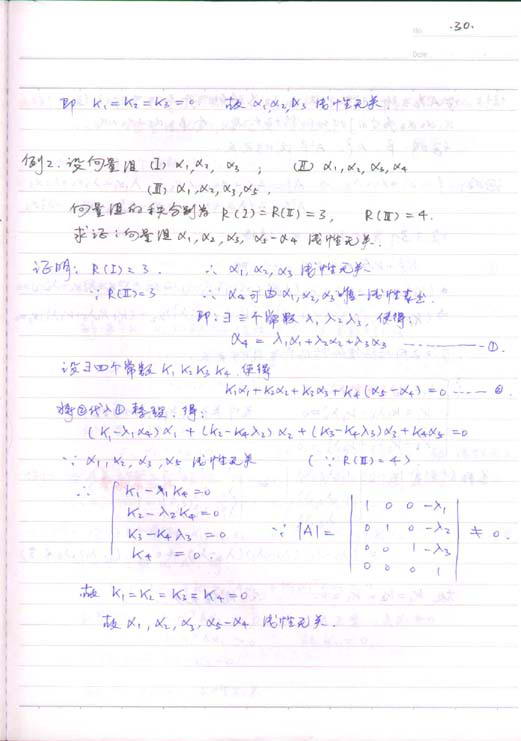 No. .30.
Date
即 K₁=K₂=K₃=0 故 α₁,α₂,α₃ 线性无关
例2. 设向量组 (I) α₁,α₂, α₃ ; (II) α₁,α₂,α₃,α₄
(III) α₁,α₂,α₃,α₅.
向量组的秩分别为 R(I)=R(II)=3, R(III)=4.
求证:向量组 α₁,α₂,α₃, α₅-α₄ 线性无关.
证明: R(I)=3. ∴ α₁,α₂,α₃ 线性无关
∵ R(II)=3 ∴ α₄可由α₁,α₂,α₃唯一线性表出.
即:∃三个常数 λ₁λ₂λ₃, 使得:
α₄=λ₁α₁+λ₂α₂+λ₃α₃ ------------ ①.
设∃四个常数 K₁ K₂ K₃ K₄ 使得
K₁α₁+K₂α₂+K₃α₃+K₄(α₅-α₄)=0 ---- ②.
将②代入①整理:得:
(K₁-λ₁α₄)α₁+(K₂-K₄λ₂)α₂+(K₃-K₄λ₃)α₃+K₄α₅=0
∵ α₁,α₂,α₃,α₅ 线性无关 (∵R(III)=4)
∴ K₁-λ₁K₄=0
K₂-λ₂K₄=0
K₃-K₄λ₃=0
K₄=0.
∵ |A|= ≠0.
1 0 0 -λ₁
0 1 0 -λ₂
0 0 1 -λ₃
0 0 0 1
故 K₁=K₂=K₃=K₄=0
故 α₁,α₂,α₃,α₅-α₄ 线性无关.